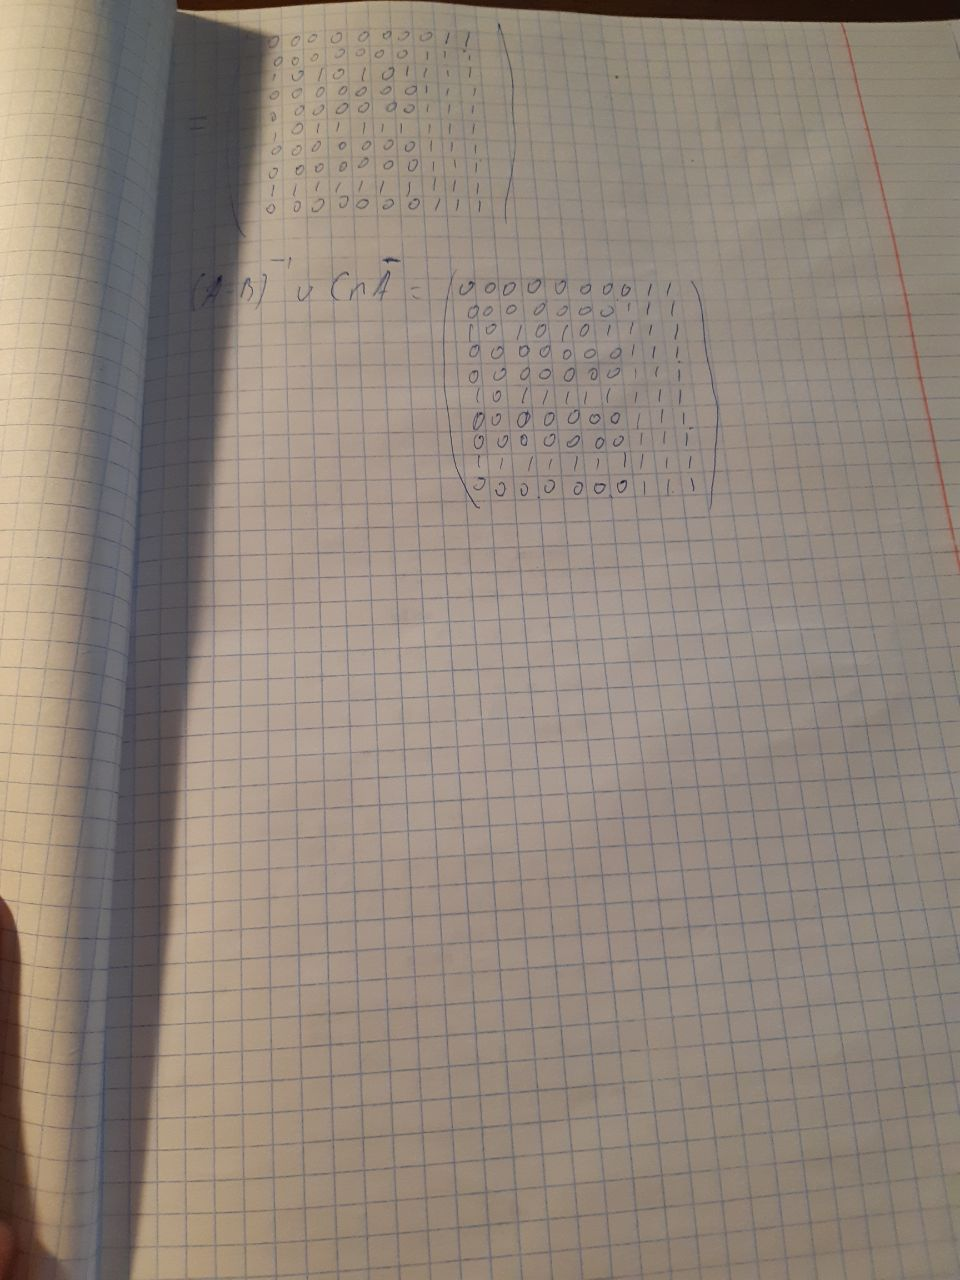 0 0 0 0 0 0 0 0 1 1
0 0 0 0 0 0 0 1 1 1
1 0 1 0 1 0 1 1 1 1
0 0 0 0 0 0 0 1 1 1
0 0 0 0 0 0 0 1 1 1
= 1 0 1 1 1 1 1 1 1 1
0 0 0 0 0 0 0 1 1 1
0 0 0 0 0 0 0 1 1 1
1 1 1 1 1 1 1 1 1 1
0 0 0 0 0 0 0 1 1 1
(A∘B)⁻¹ ∪ C∩A̅ = 0 0 0 0 0 0 0 0 1 1
0 0 0 0 0 0 0 1 1 1
1 0 1 0 1 0 1 1 1 1
0 0 0 0 0 0 0 1 1 1
0 0 0 0 0 0 0 1 1 1
1 0 1 1 1 1 1 1 1 1
0 0 0 0 0 0 0 1 1 1
0 0 0 0 0 0 0 1 1 1
1 1 1 1 1 1 1 1 1 1
0 0 0 0 0 0 0 1 1 1